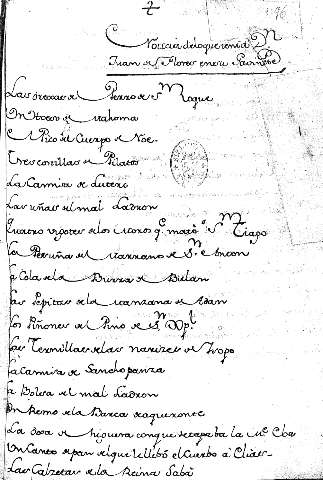 Noticia de lo que tenia Dn
Juan de Flores en su
Las orexas del Perro de Sn Roque
Un hueso de Mahoma
El Pico del Cuerpo de Noe
Tres costillas de Pilatos
La Camisa de Lutero
Las uñas del mal Ladron
Quatro vigotes de los Moros q. mató Sn Tiago
La Pesuña del Marrano de Sn Anton
La Cola de la Burra de Balan
Las Pepitas de la Manzana de Adan
Los Piñones del Pino de Sn
Las Ternillas de las narizes de Ysopo
La Camisa de Sancho panza
La Bolsa del mal Ladron
Un Remo de la Barca de aqueronte
La oja de higuera con que se tapaba la Me Eba
Un Canto de pan del que le llebó el Cuerbo á Elias
Las Calzetas de la Reina Sabá